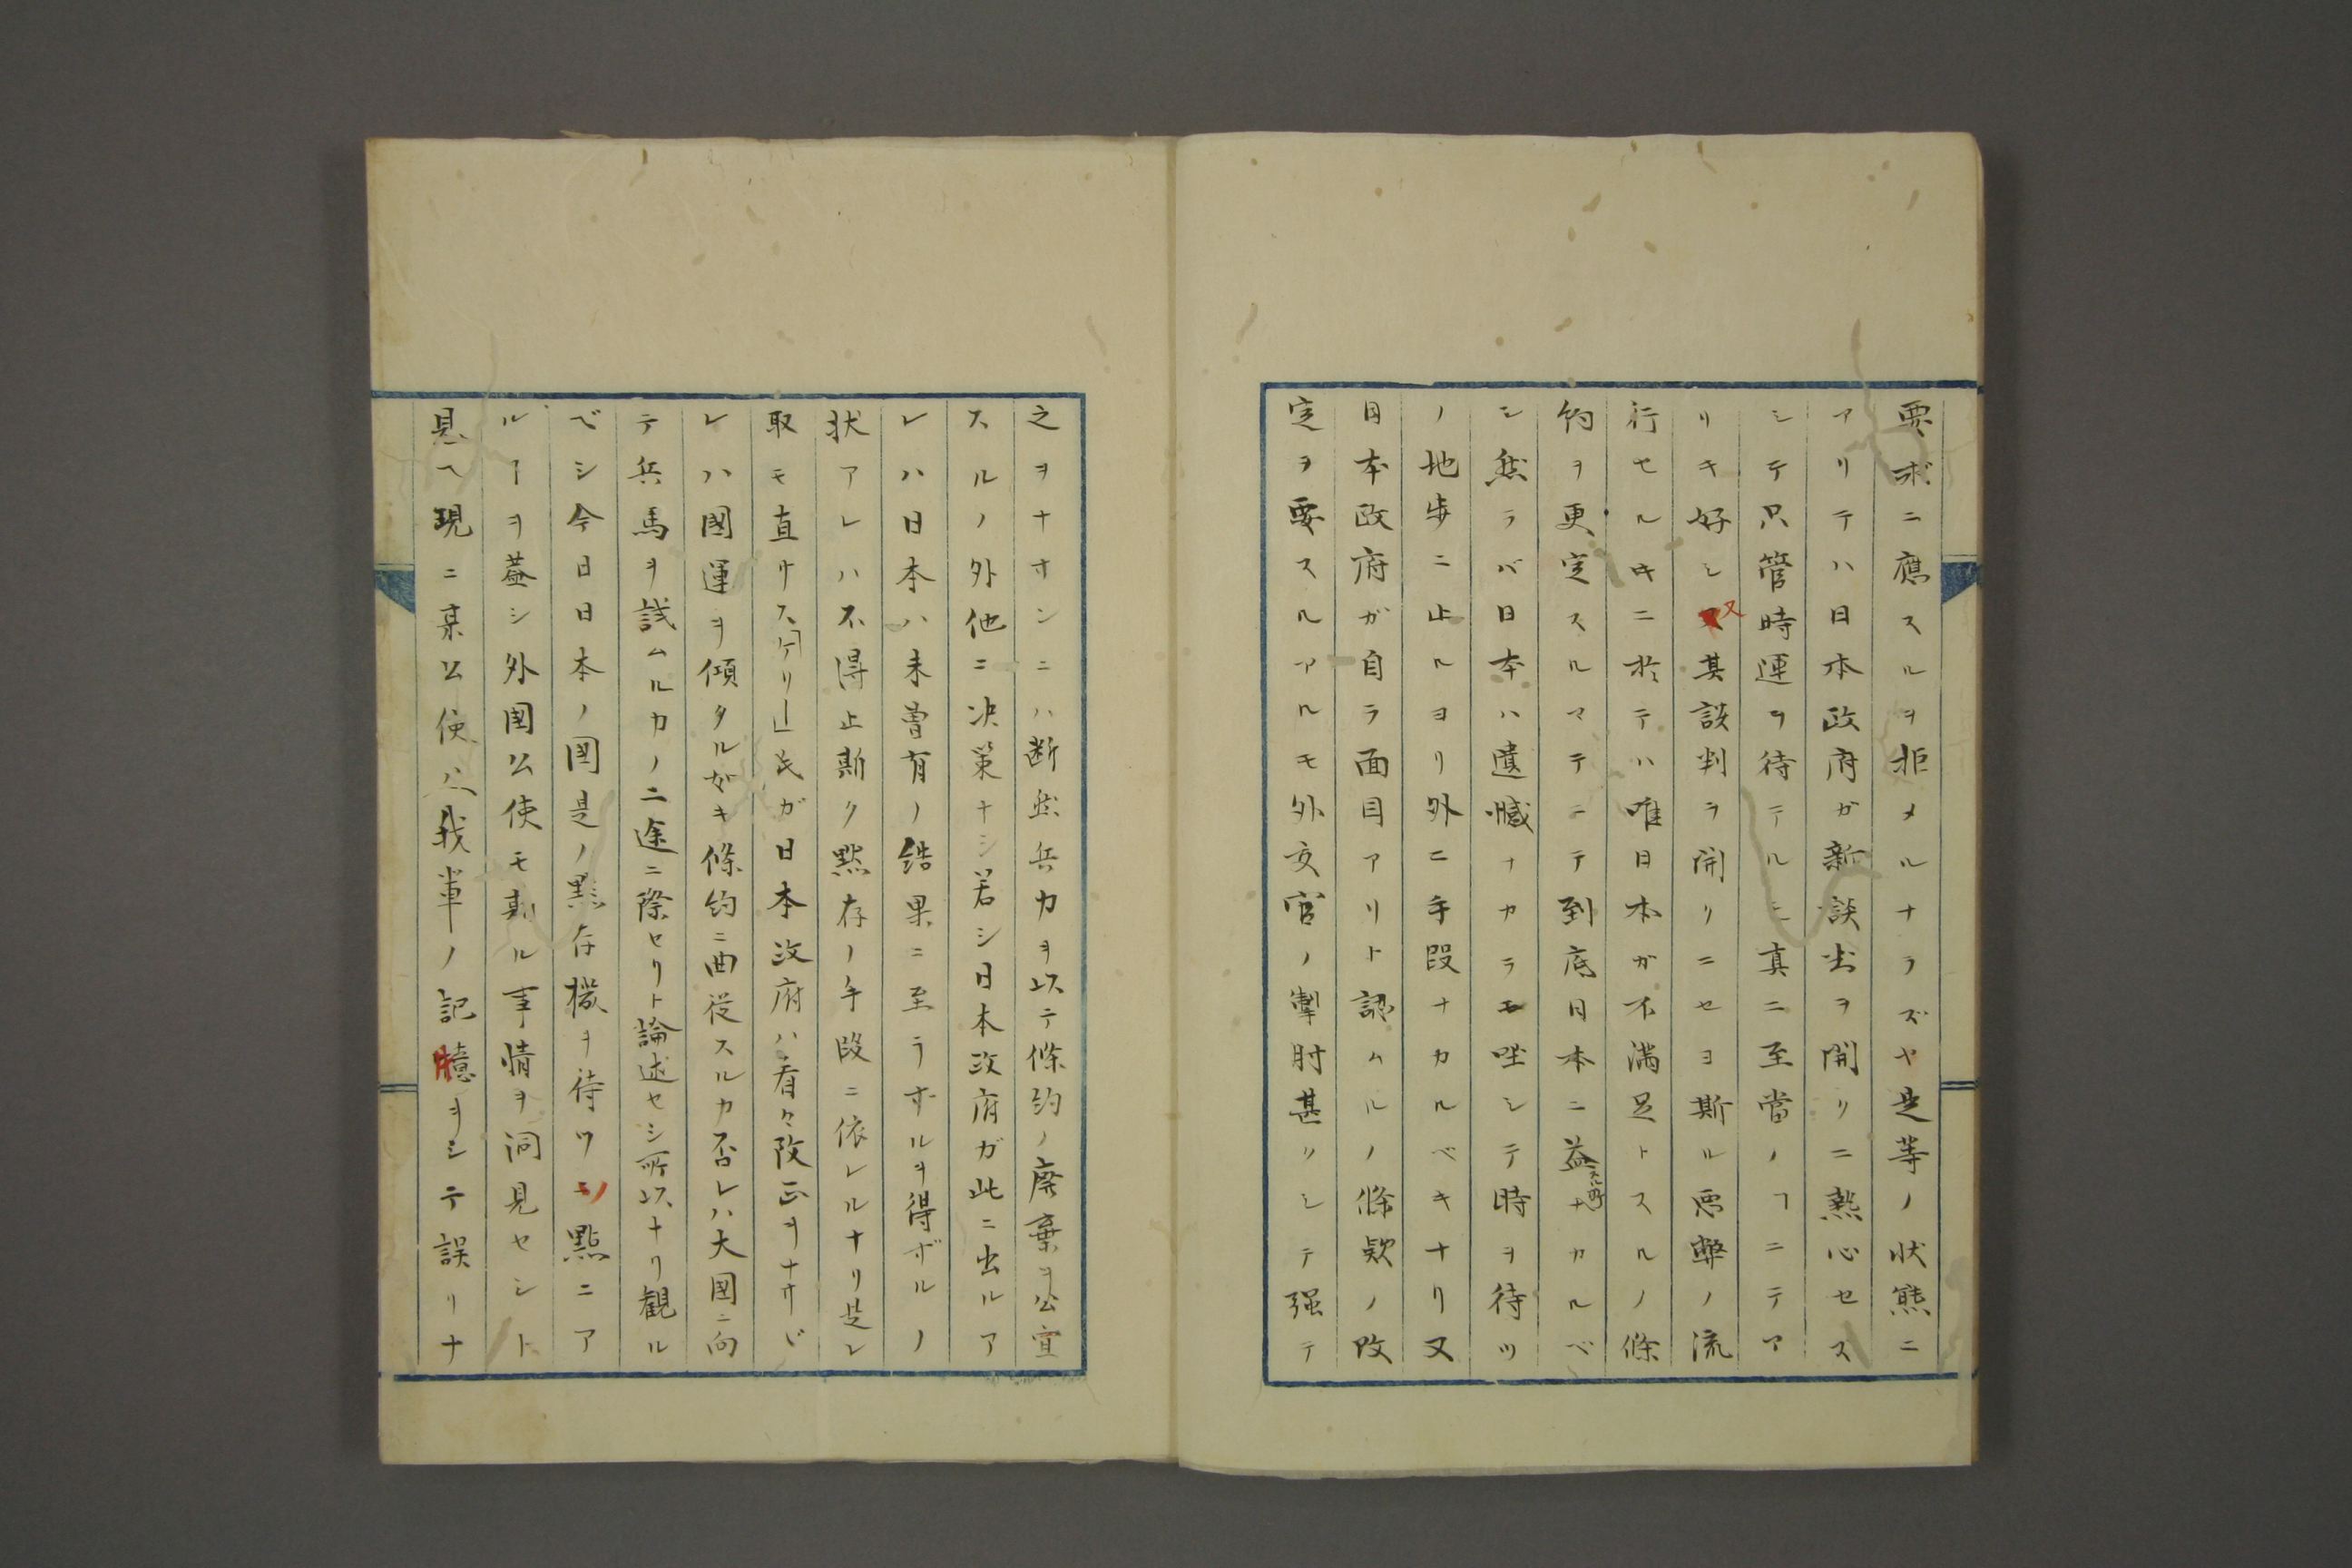 要求ニ應スルヲ拒メルナラズヤ是等ノ状態ニ
アリテハ日本政府ガ新談出ヲ開クニ熱心セス
シテ只管時運ヲ待テルハ真ニ至當ノヿニテア
リキ好シ又其談判ヲ開クニセヨ斯ル悪弊ノ流
行セルキニ於テハ唯日本ガ不満足トスルノ條
約ヲ更定スルマテニテ到底日本ニ益スル所ナカルベ
シ然ラバ日本ハ遺憾ナカラモ坐シテ時ヲ待ツ
ノ地歩ニ止ルヨリ外ニ手段ナカルベキナリ又
日本政府ガ自ラ面目アリト認ムルノ條欵ノ改
定ヲ要スルアルモ外交官ノ掣肘甚クシテ强テ
之ヲナサンニハ断然兵力ヲ以テ條約ノ廃棄ヲ公宣
スルノ外他ニ决策ナシ若シ日本政府ガ此ニ出ルア
レハ日本ハ未曽有ノ結果ニ至ラザルヲ得ザルノ
状アレハ不得止斯ク黙存ノ手段ニ依レルナリ是レ
取モ直サス「ケリー」氏ガ日本政府ハ看々改正ヲナサヾ
レハ國運ヲ傾タル如キ條約ニ曲従スルカ否レハ大國ニ向
テ兵馬ヲ試ムルカノ二途ニ際セリト論述セシ所以ナリ観ル
ベシ今日日本ノ國是ノ黙存機ヲ待ツノ點ニア
ルヿヲ蓋シ外國公使モ則ル事情ヲ洞見セシト
見ヘ現ニ某公使ハ我軰ノ記臆ヲシテ誤リナ